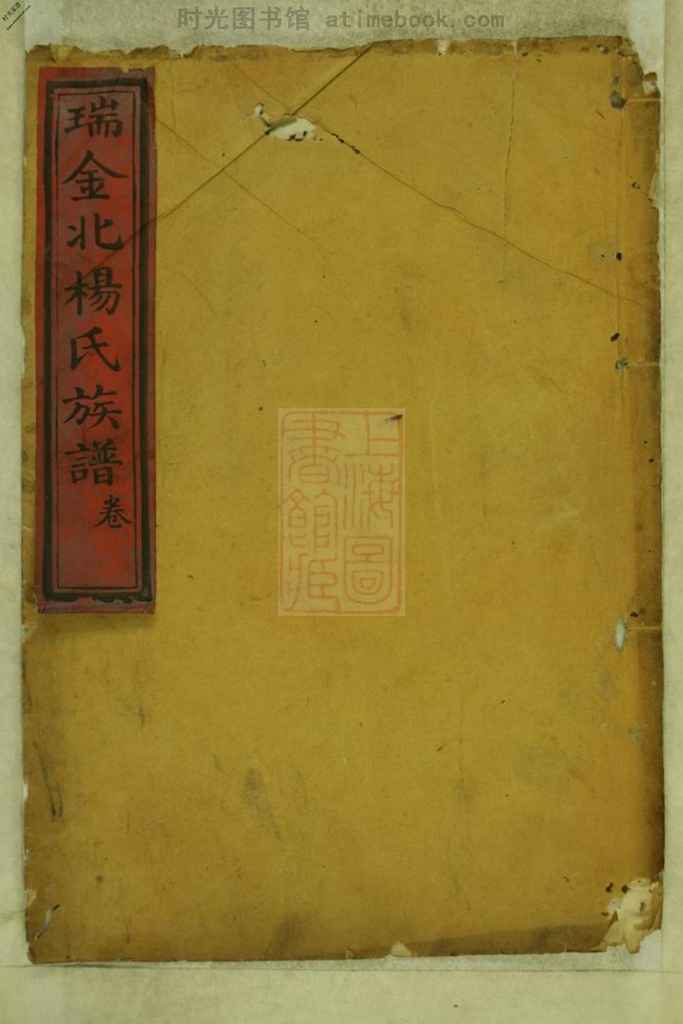 时光图书馆 atimebook.com
瑞金北楊氏族譜
卷
上海圖
書館藏